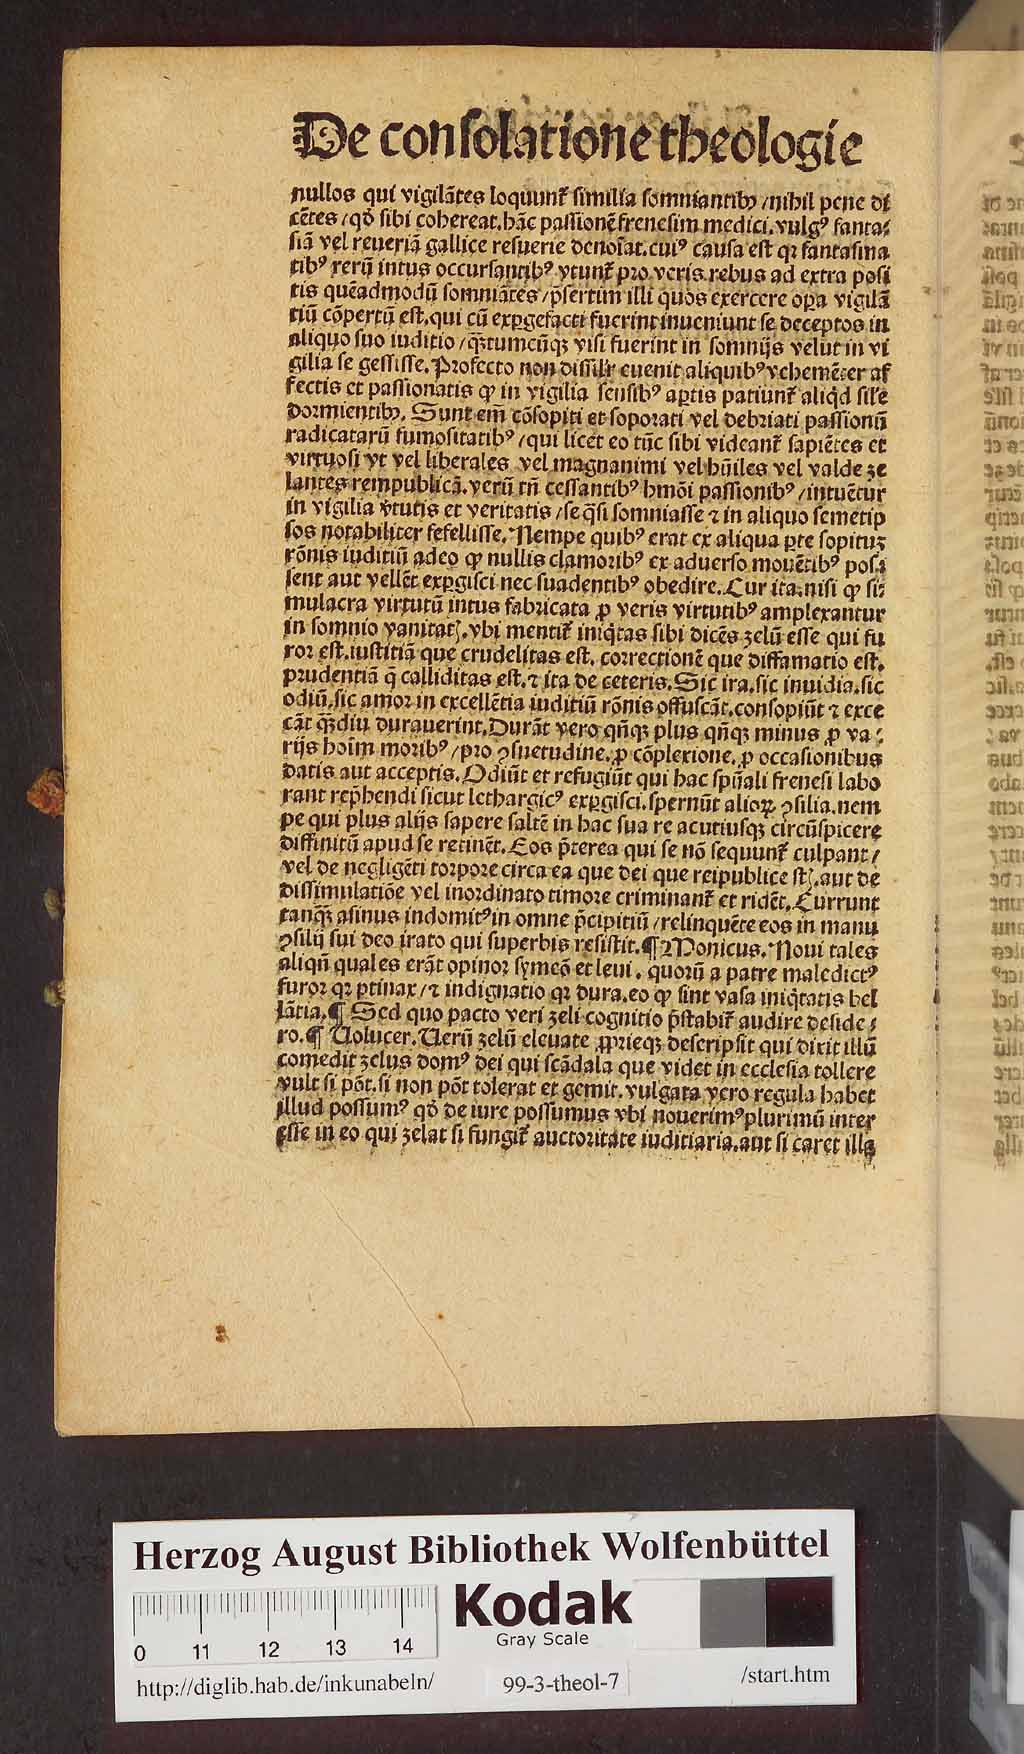 De consolatione theologie
nullos qui vigilātes loquunt᷑ similia somniantibꝰ /nihil pene di
cētes /qđ sibi cohereat.hāc passionē frenesim medici.vulgꝰ fanta⸗
siā vel reueriā gallice resuerie denoīat.cuiꝰ causa est qꝛ fantasma
tibꝰ rerū intus occursantibꝰ vtunt᷑ pro veris rebus ad extra posi
tis quēadmodū somniātes /p̄sertim illi quos exercere oꝑa vigilā
tiū cōpertū est.qui cū exꝑgefacti fuerint inueniunt se deceptos in
aliquo suo iuditio /qȝtumcūqȝ visi fuerint in somnijs velut in vi
gilia se gessisse.Profecto non dissilr̄ euenit aliquibꝰ vehemēter af
fectis et passionatis ꝙ in vigilia sensibꝰ aꝑtis patiunt᷑ aliqd̓ sil̓e
dormientibꝰ. Sunt em̄ cōsopiti et soporati vel debriati passionū
radicatarū fumositatibꝰ /qui licet eo tūc sibi videant᷑ sapiētes et
virtuosi vt vel liberales vel magnanimi vel hūiles vel valde ze
lantes rempublicā.verū tn̄ cessantibꝰ hmōi passionibꝰ /intuētur
in vigilia v̓tutis et veritatis /se q̄si somniasse ⁊ in aliquo semetip
sos notabiliter fefellisse. Nempe quibꝰ erat ex aliqua ꝑte sopituȝ
rōnis iuditiū adeo ꝙ nullis clamoribꝰ ex aduerso mouētibꝰ pos⸗
sent aut vellēt exꝑgisci nec suadentibꝰ obedire.Cur ita.nisi ꝙ si⸗
mulacra virtutū intus fabricata ꝓ veris virtutibꝰ amplexantur
in somnio vanitatꝭ.vbi mentit᷑ iniq̓tas sibi dicēs zelū esse qui fu
ror est.iustitiā que crudelitas est. correctionē que diffamatio est.
prudentiā q̄ calliditas est.⁊ ita de ceteris.Sic ira.sic inuidia.sic
odiū.sic amor in excellētia iuditiū rōnis offuscāt.consopiūt ⁊ exce
cāt qȝdiu durauerint.Durāt vero qn̄qȝ plus qn̄qȝ minus ꝓ va⸗
rijs hoīm moribꝰ /pro ꝯsuetudine.ꝓ cōplexione.ꝓ occasionibus
datis aut acceptis.Odiūt et refugiūt qui hac spūali frenesi labo
rant rep̄hendi sicut lethargicꝰ exꝑgisci.spernūt alioꝝ ꝯsilia.nem
pe qui plus alijs sapere saltē in hac sua re acutiusqȝ circūspicere
diffinitū apud se retinēt.Eos p̄terea qui se nō sequunt᷑ culpant /
vel de negligēti torpore circa ea que dei que reipublice sꝭt.aut de
dissimulatiōe vel inordinato timore criminant᷑ et ridēt.Currunt
tanqȝ asinus indomitꝰ in omne p̄cipitiū /relinquēte eos in manu
ꝯsilij sui deo irato qui superbis resistit.¶Monicus.Noui tales
aliqn̄ quales erāt opinor symeō et leui . quorū a patre maledictꝰ
furor qꝛ ꝑtinax /⁊ indignatio qꝛ dura.eo ꝙ sint vasa iniq̓tatis bel
lātia.¶ Sed quo pacto veri zeli cognitio p̄stabit᷑ audire deside⸗
ro.¶ Uolucer.Uerū zelū eleuate ꝓprieqȝ descripsit qui dixit illū
comedit zelus domꝰ dei qui scādala que videt in ecclesia tollere
vult si pōt.si non pōt tolerat et gemit.vulgata vero regula habet
illud possumꝰ qđ de iure possumus vbi nouerimꝰ plurimū inter
esse in eo qui zelat si fungit᷑ auctoritate iuditiaria.aut si caret illa
Herzog August Bibliothek Wolfenbüttel
Kodak
Gray Scale
0 11 12 13 14
http://diglib.hab.de/inkunabeln/ 99-3-theol-7 /start.htm